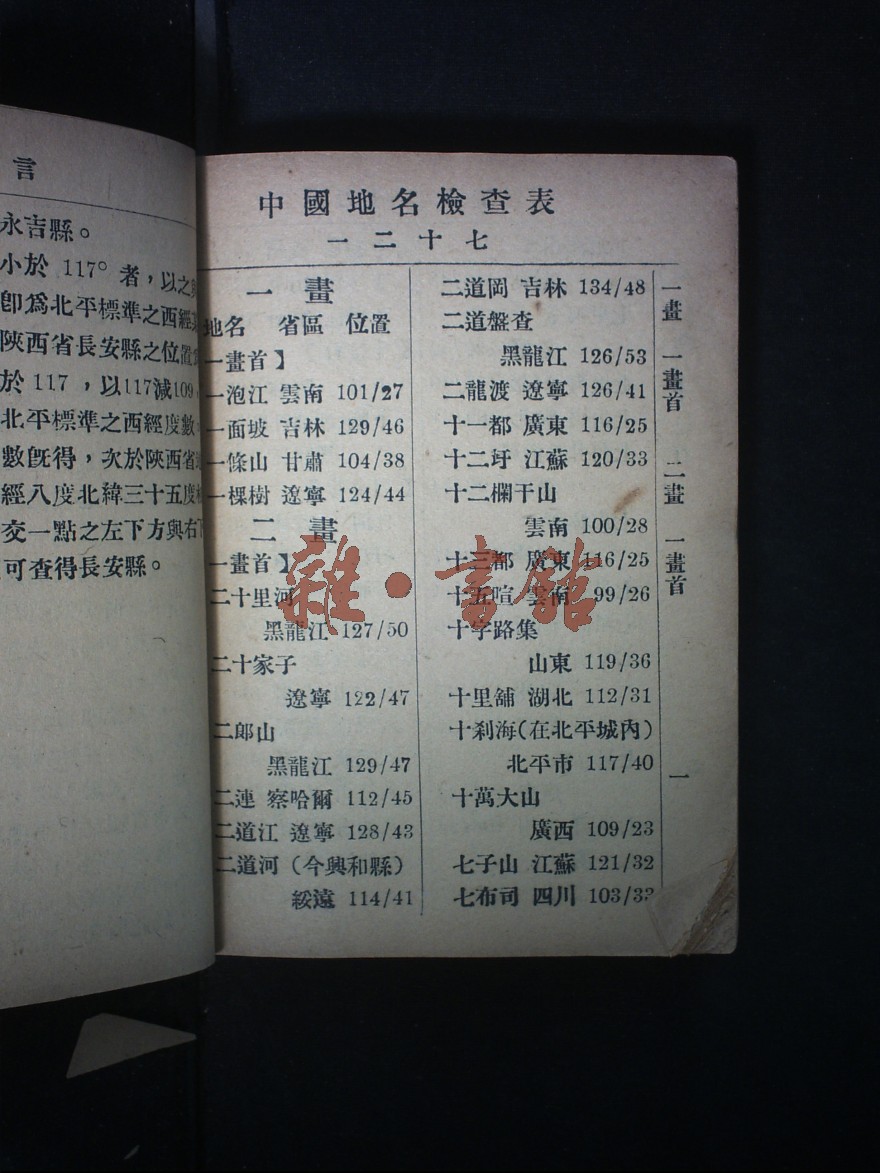 言
永吉縣。
小於 117° 者，以之
卽爲北平標準之西經
陝西省長安縣之位置
於 117 ，以117減109，
北平標準之西經度數，
數旣得，次於陝西省
經八度北緯三十五度
交一點之左下方與右下
可查得長安縣。
中國地名檢查表
一二十七
一畫
地名 省區 位置
一畫首】
一泡江 雲南 101/27
一面坡 吉林 129/46
一條山 甘肅 104/38
一棵樹 遼寧 124/44
二畫
一畫首】
二十里河
黑龍江 127/50
二十家子
遼寧 122/47
二郞山
黑龍江 129/47
二連 察哈爾 112/45
二道江 遼寧 128/43
二道河（今興和縣）
綏遠 114/41
二道岡 吉林 134/48
二道盤查
黑龍江 126/53
二龍渡 遼寧 126/41
十一都 廣東 116/25
十二圩 江蘇 120/33
十二欄干山
雲南 100/28
十三都 廣東 116/25
十五喧 雲南 99/26
十字路集
山東 119/36
十里舖 湖北 112/31
十刹海(在北平城內)
北平市 117/40
十萬大山
廣西 109/23
七子山 江蘇 121/32
七布司 四川 103/33
一畫 一畫首 二畫 一畫首
一
雜·書館